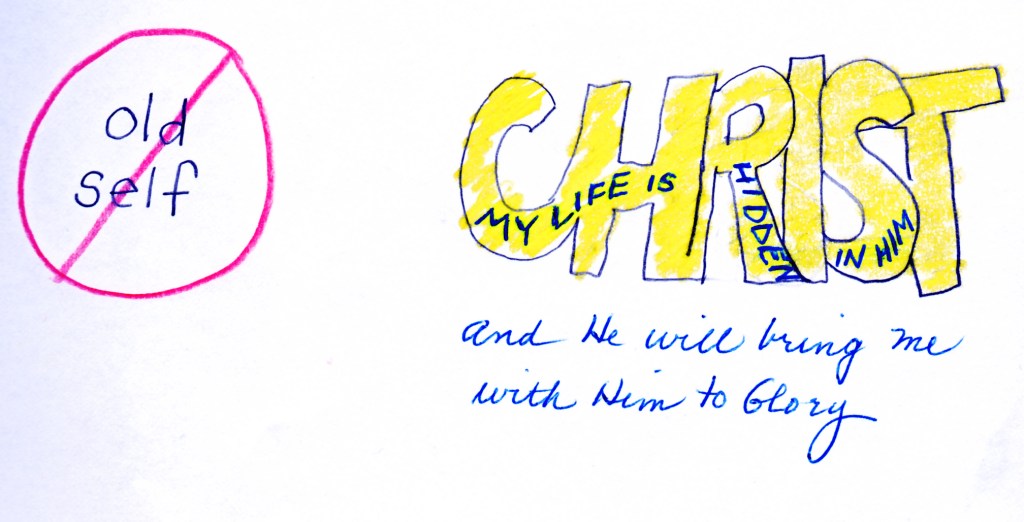 old
self
CHRIST
MY LIFE IS HIDDEN IN HIM
and He will bring me
with Him to Glory